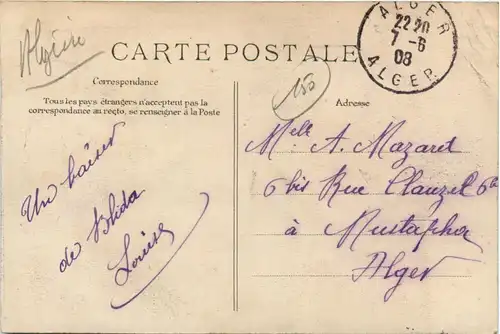 Algérie
CARTE POSTALE
ALGER
22 20
7 - 6
08
ALGER
150
Correspondance
Tous les pays étrangers n'acceptent pas la
correspondance au recto, se renseigner à la Poste
Adresse
Un baiser
de Blida
Louise
Melle A. Mazaret
6 bis Rue Clauzel 6 bis
à Mustapha
Alger